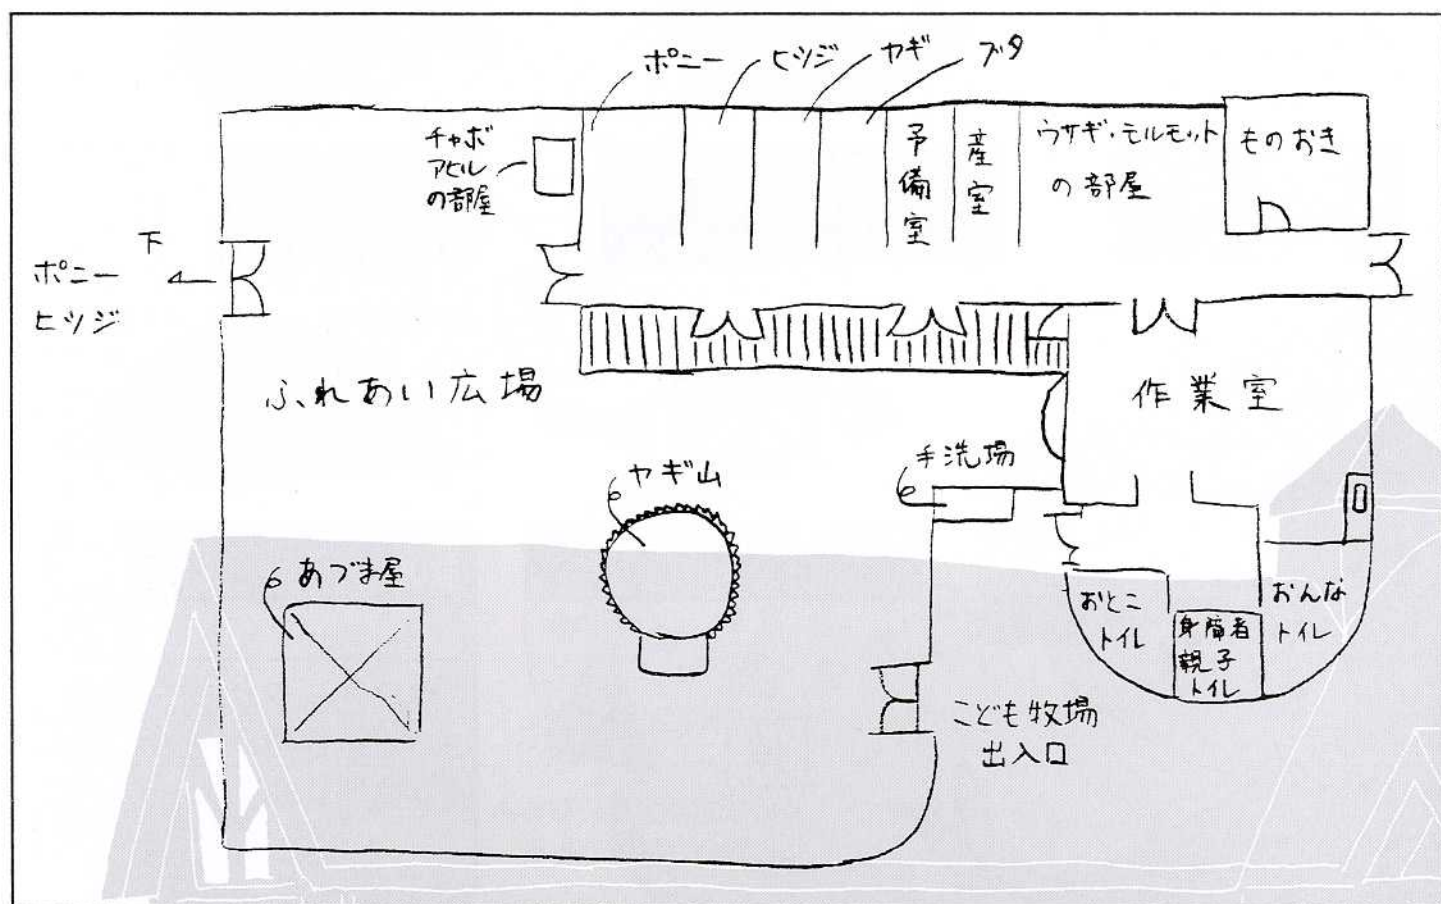 ポニー
ヒツジ
ヤギ
ブタ
チャボ
アヒル
の部屋
予備室
産室
ウサギ・モルモット
の部屋
ものおき
下
ポニー
ヒツジ
ふれあい広場
作業室
手洗場
ヤギ山
あづま屋
おとこ
トイレ
身障者
親子
トイレ
おんな
トイレ
こども牧場
出入口